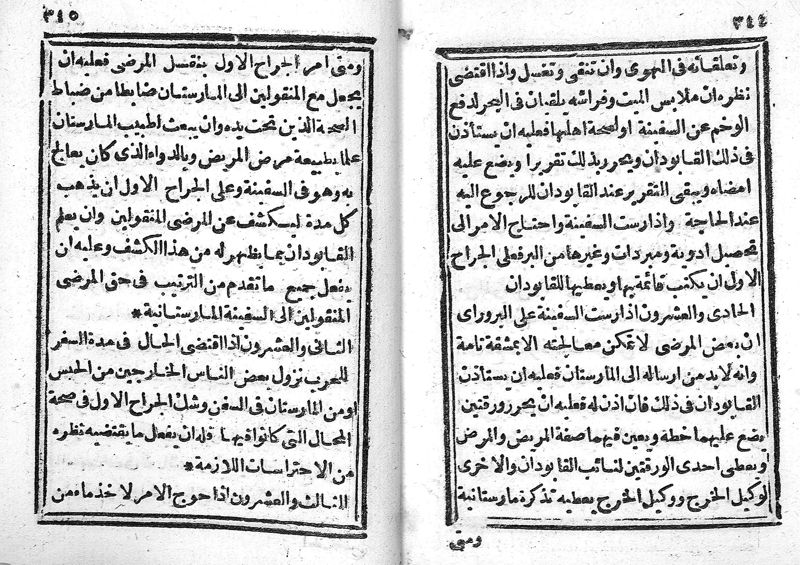 ٣٤٤
وتعلقاته فى الهوى وان تنقى وتغسل واذا اقتضى
نظره ان ملابس الميت وفراشه يلقيان فى البحر لدفع
الوخم عن السفينة او لصحة اهليها فعليه ان يستأذن
فى ذلك القابودان ويحرر بذلك تقريرا ويضع عليه
امضاه ويبقى التقرير عند القابودان للرجوع اليه
عند الحاجة واذا رست السفينة واحتاج الامر الى
تحصيل ادوية ومبردات وغيرها من البر فعلى الجراح
الاول ان يكتب قائمة بها ويعطيها للقابودان
الحادى والعشرون اذا رست السفينة على البر وراى
ان بعض المرضى لا تمكن معالجته الا بمشقة تامة
وانه لا بد من ارساله الى المارستان فعليه ان يستأذن
القابودان فى ذلك فان اذن له فعليه ان يحرر ورقتين
يضع عليهما خطه ويعين فيهما صفة المريض والمرض
ويعطى احدى الورقتين لنائب القابودان والاخرى
لوكيل الخرج ووكيل الخرج يعطيه تذكرة مارستانية
ومتى
٣٤٥
ومتى امر الجراح الاول بنقل المرضى فعليه ان
يجعل مع المنقولين الى المارستان ضابطا من ضباط
الصحة الذين تحت يده وان يبعث لطبيب المارستان
علما بطبيعة مرض المريض وبالدواء الذى كان يعالج
به وهو فى السفينة وعلى الجراح الاول ان يذهب
كل مدة ليكشف عن المرضى المنقولين وان يعلم
القابودان بما يظهر له من هذا الكشف وعليه ان
يفعل جميع ما تقدم من الترتيب فى حق المرضى
المنقولين الى السفينة المارستانية *
الثانى والعشرون اذا اقتضى الحال فى مدة السفر
للحرب نزول بعض الناس الخارجين من الحبس
او من المارستان فى السفن وشك الجراح الاول فى صحة
المحال التى كانوا فيها فله ان يفعل ما يقتضيه نظره
من الاحتراسات اللازمة *
الثالث والعشرون اذا حوج الامر لاخذ ماء من